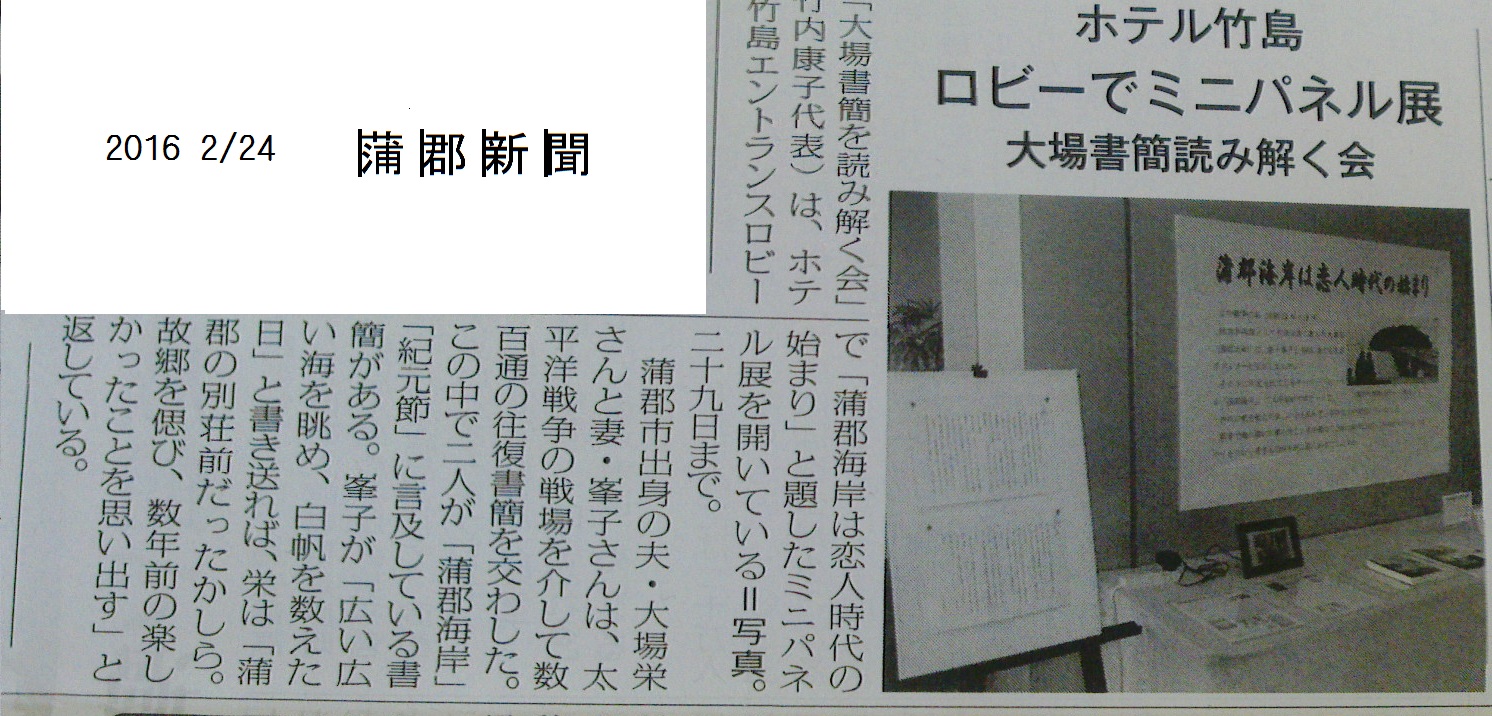 2016 2/24 蒲郡新聞
ホテル竹島
ロビーでミニパネル展
大場書簡読み解く会
「大場書簡を読み解く会」
竹内康子代表）は、ホテ
竹島エントランスロビー
で「蒲郡海岸は恋人時代の
始まり」と題したミニパネ
ル展を開いている＝写真。
二十九日まで。
蒲郡市出身の夫・大場栄
さんと妻・峯子さんは、太
平洋戦争の戦場を介して数
百通の往復書簡を交わした。
この中で二人が「蒲郡海岸」
「紀元節」に言及している書
簡がある。峯子が「広い広
い海を眺め、白帆を数えた
日」と書き送れば、栄は「蒲
郡の別荘前だったかしら。
故郷を偲び、数年前の楽し
かったことを思い出す」と
返している。
蒲郡海岸は恋人時代の始まり